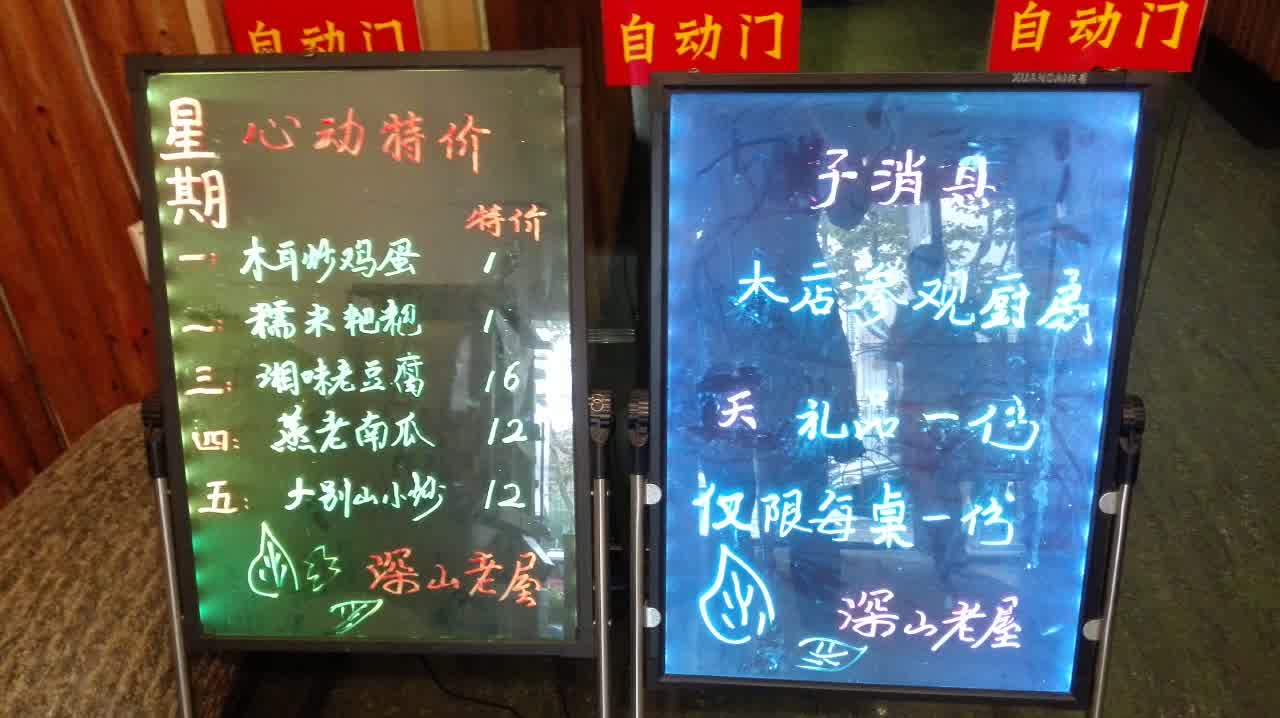 自动门
自动门
自动门
星期
心动特价
特价
一: 木耳炒鸡蛋 1
二: 糯米粑粑 1
三: 湘味老豆腐 16
四: 蒸老南瓜 12
五: 大别山小炒 12
深山老屋
子消息
本店参观厨房
天 礼品一份
仅限每桌一份
深山老屋